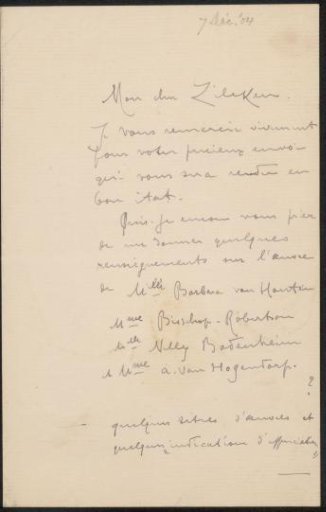 7 Déc. 04
Mon cher Zilcken.
Je vous remercie vivement
pour votre précieux envoi
qui vous sera rendu en
bon état.
Puis-je encore vous prier
de me donner quelques
renseignements sur l'œuvre
de Melle Barbara van Houten
Mme Bisschop-Robertson
Melle Nelly Bodenheim
et Mme A. van Hogendorp.
?
– quelques titres d'œuvres et
quelques indications d'